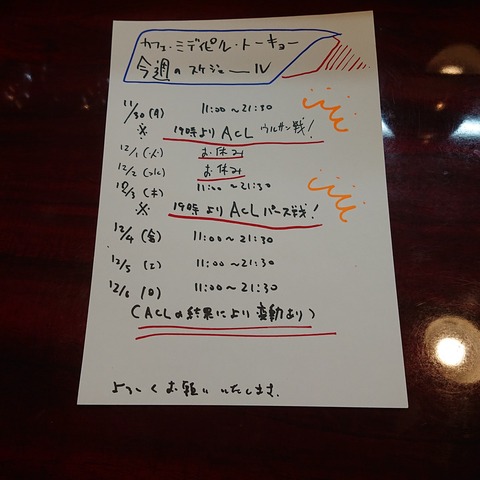 カフェ・ミディピル・トーキョー
今週のスケジュール
11/30(月) 11:00〜21:30
※ 19時より ACL ウルサン戦!
12/1(火) お休み
12/2(水) お休み
12/3(木) 11:00〜21:30
※ 19時より ACL パース戦!
12/4(金) 11:00〜21:30
12/5(土) 11:00〜21:30
12/6(日) 11:00〜21:30
(ACLの結果により変動あり)
よろしくお願いいたします.